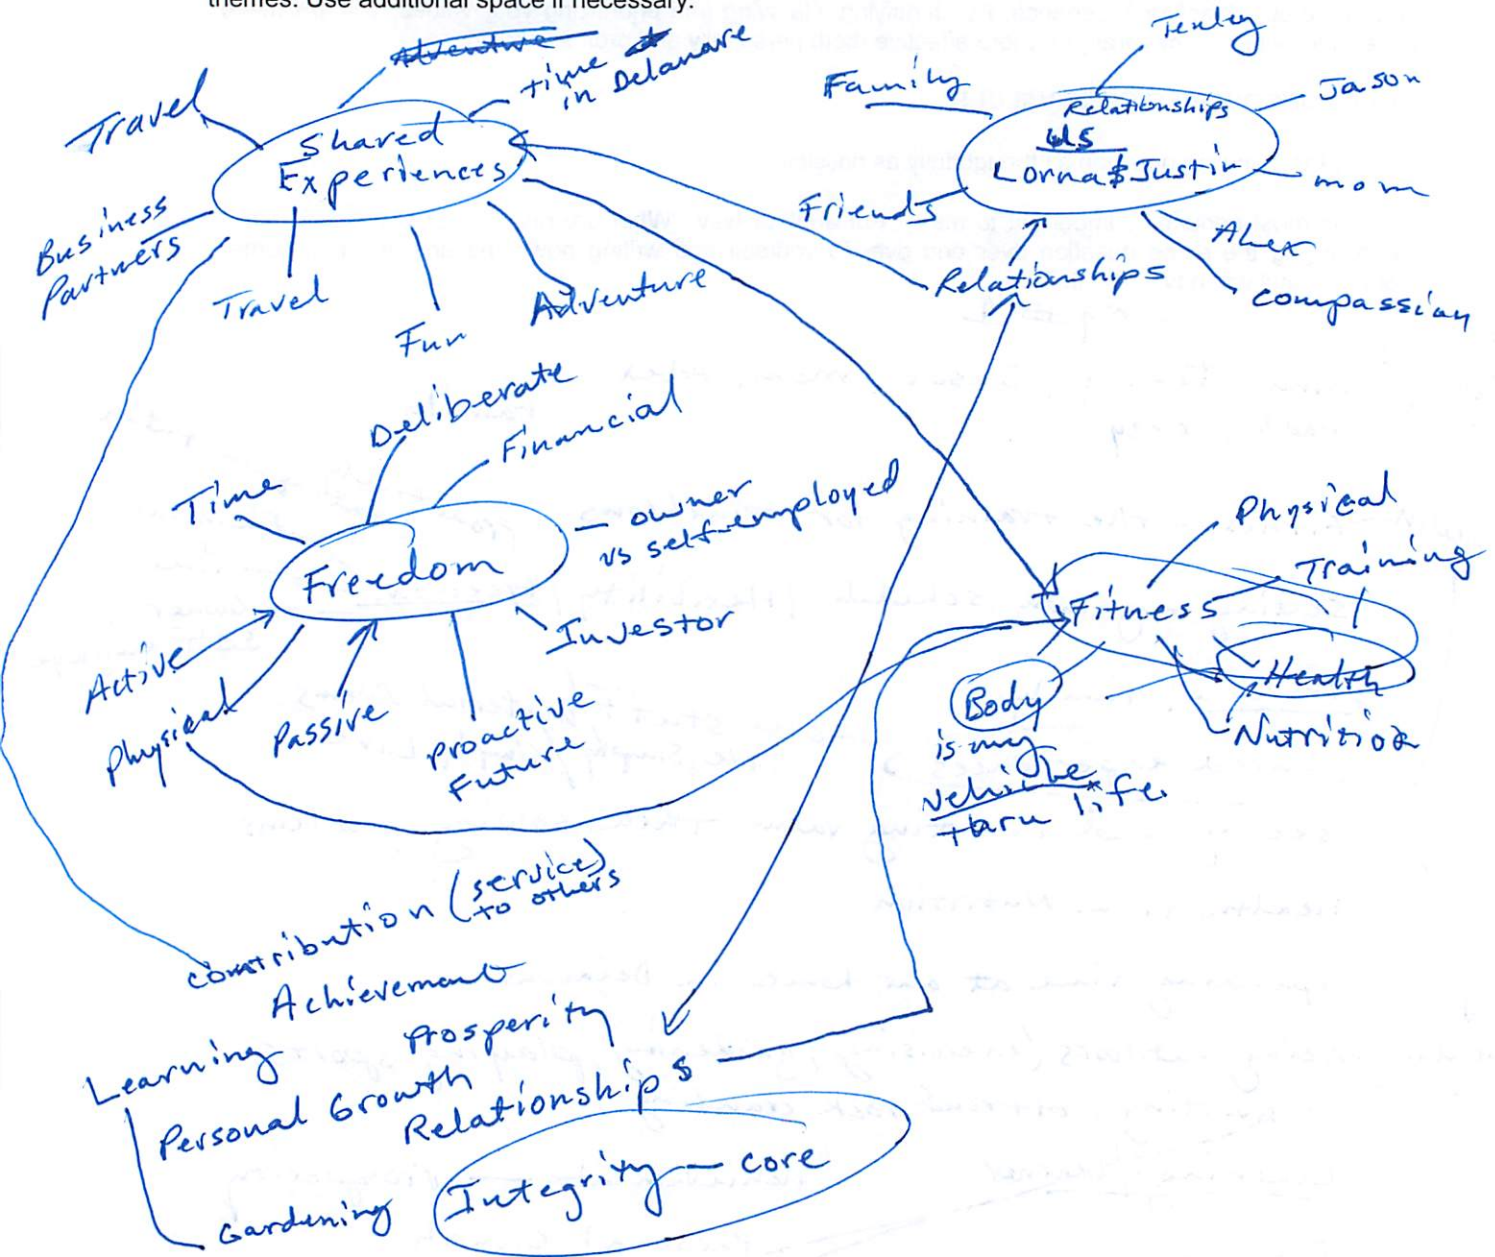 themes. Use additional space if necessary.
Adventure
time
in Delaware
Travel
Shared
Experiences
Business
Partners
Travel
Fun
Adventure
Family
Tenley
Jason
Relationships
us
Lorna & Justin
mom
Friends
Alex
compassion
Relationships
Deliberate
Financial
Time
owner
vs self-employed
Freedom
Investor
Active
Physical
Passive
proactive
Future
Physical
Training
Fitness
Health
Nutrition
Body
is my
vehicle
thru life
contribution (service)
to others
Achievement
Prosperity
Learning
Personal Growth
Relationships
Gardening
Integrity - core